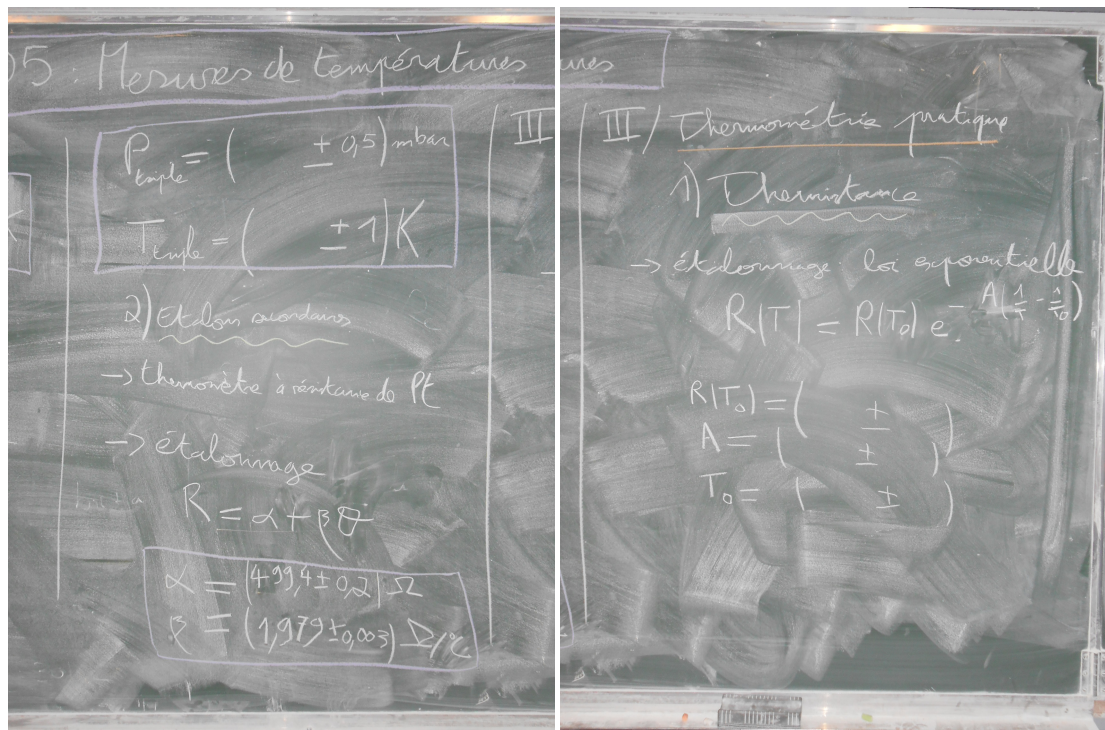 05 : Mesures de températures
P triple = (      ± 0,5) mbar
T triple = (      ± 1) K
2) Etalons secondaires
→ thermomètre à résistance de Pt
→ étalonnage
R = α + β θ
α = (499,4 ± 0,2) Ω
β = (1,979 ± 0,003) Ω/°C
III
ures
III/ Thermométrie pratique
1) Thermistance
→ étalonnage : loi exponentielle
R(T) = R(T₀) e^{- A(1/T - 1/T₀)}
R(T₀) = (      ±      )
A = (      ±      )
T₀ = (      ±      )